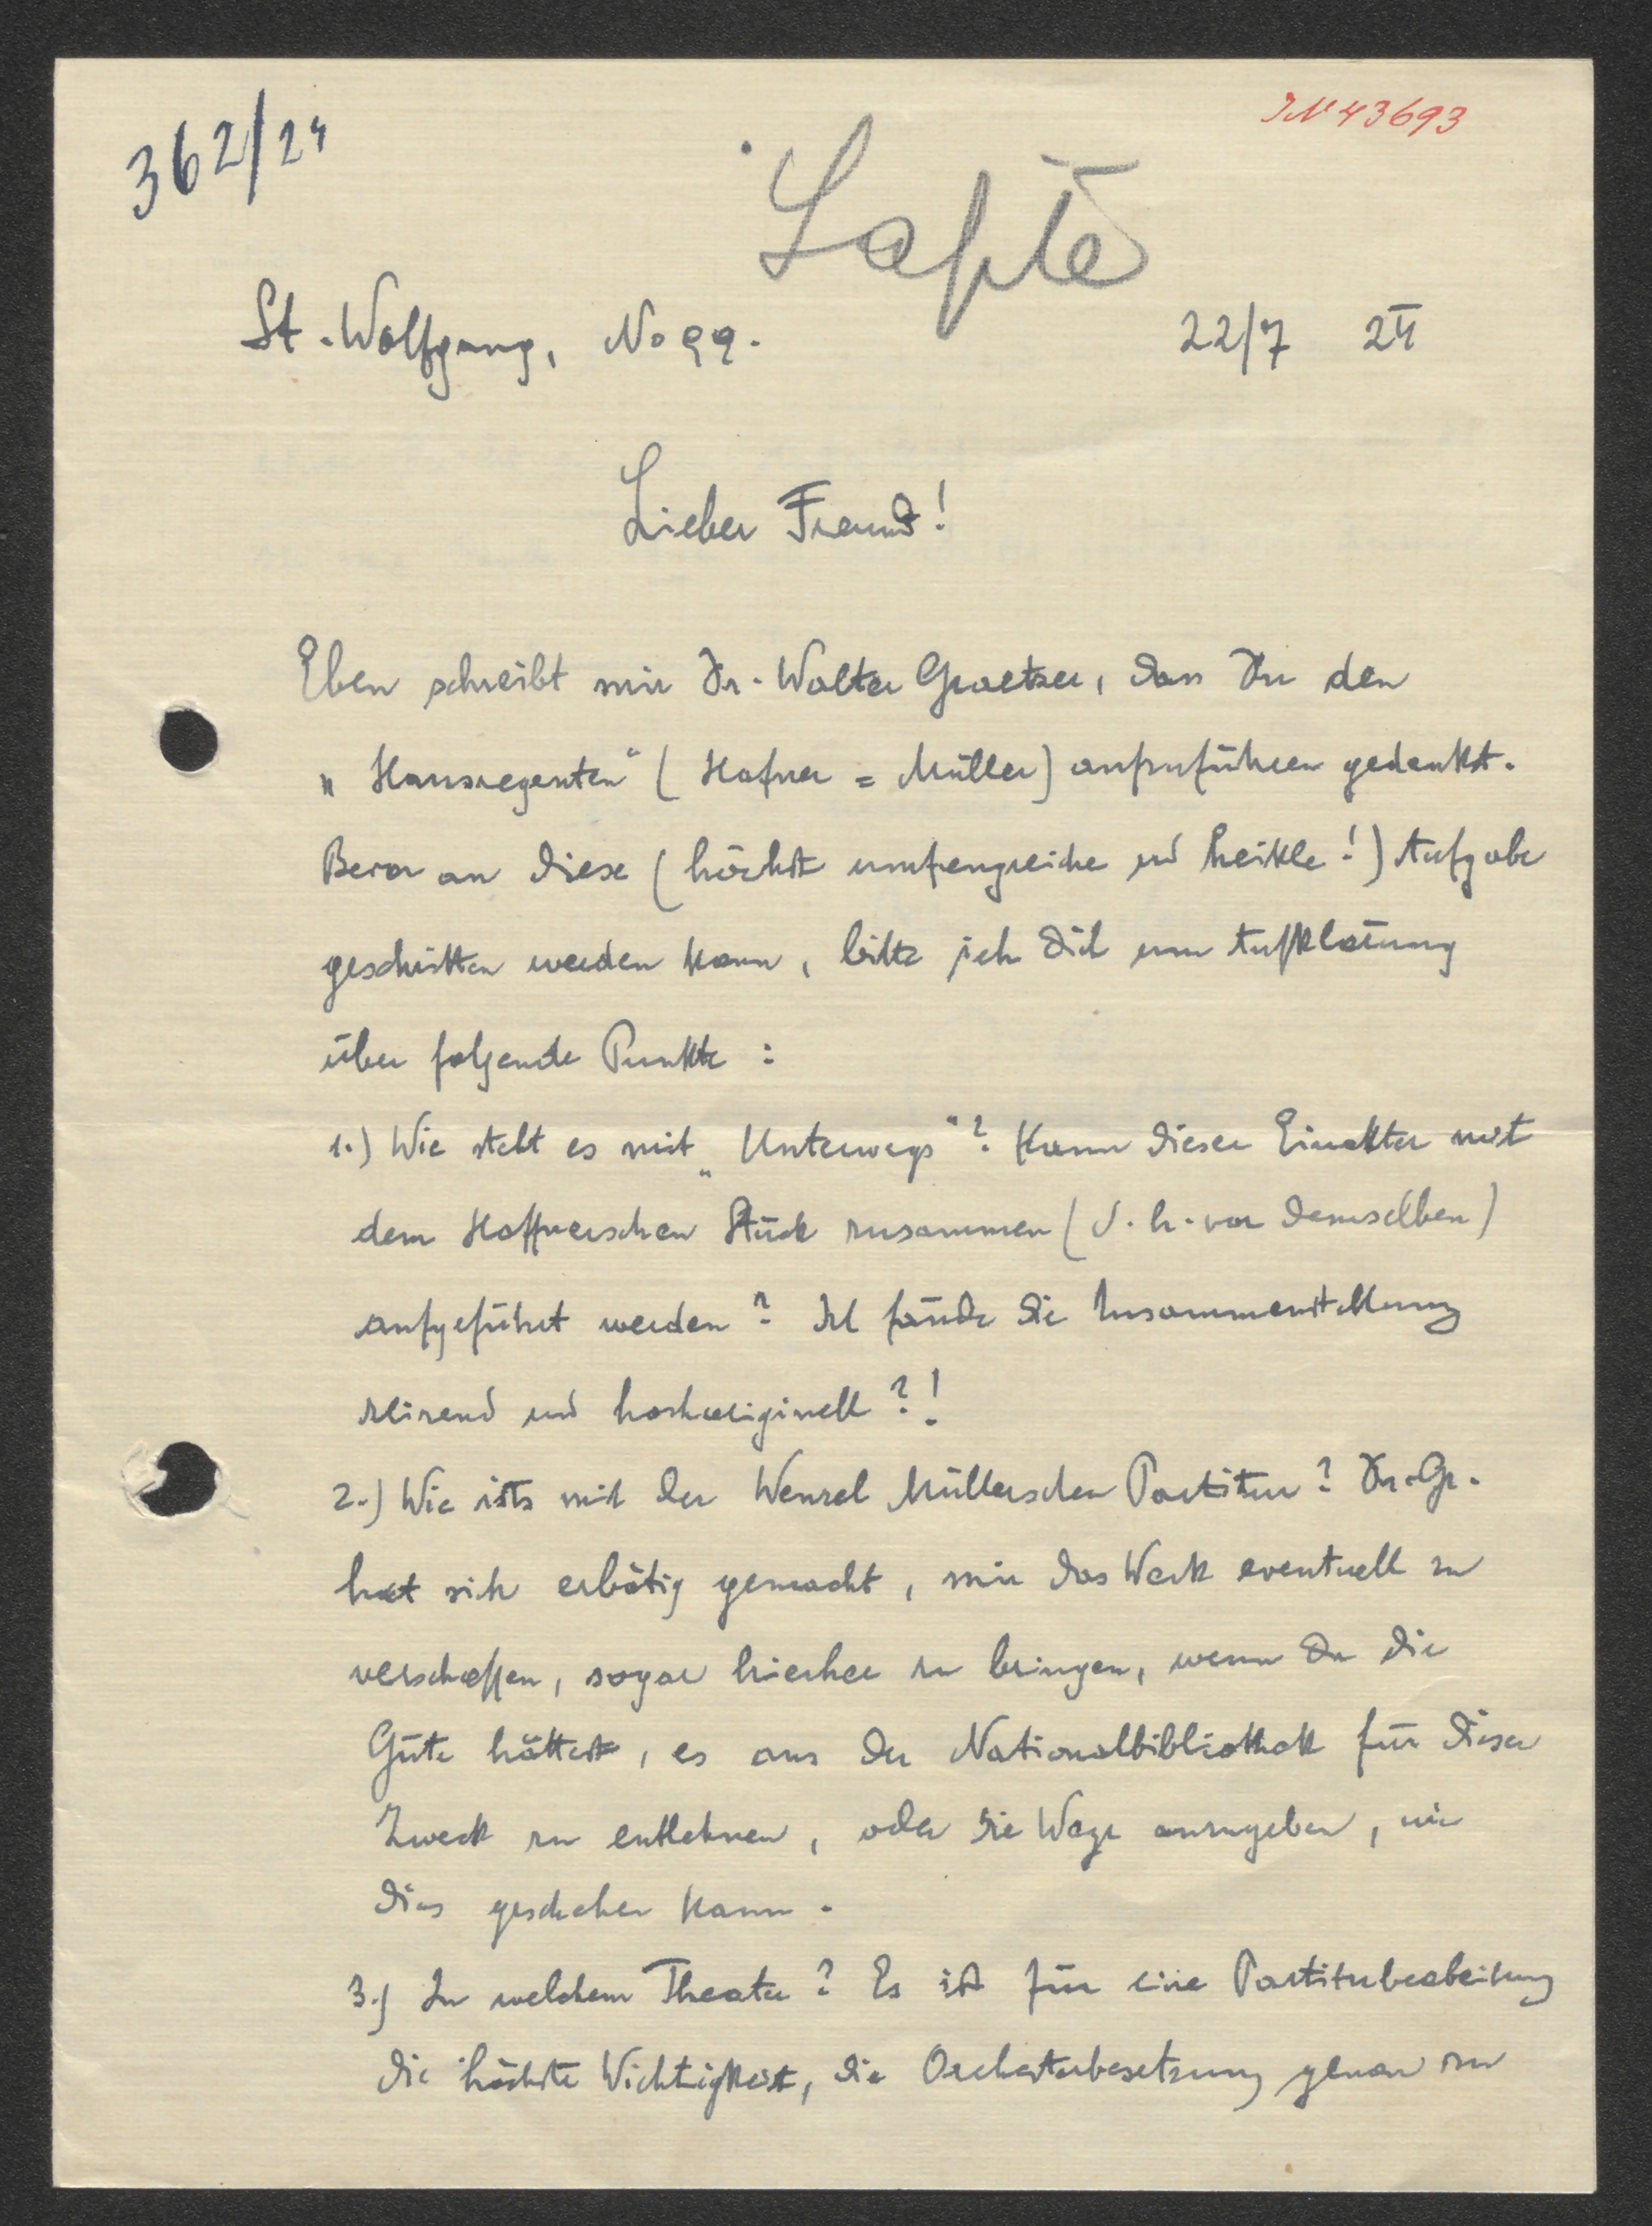 362/24
IN 43693
Lafite
St. Wolfgang, No 99.
22/7 24
Lieber Freund!
Eben schreibt mir Dr. Walter Graetzer, dass Du den
„Hausregenten" (Hafner = Müller) aufzuführen gedenkst.
Bevor an diese (höchst umfangreiche und heikle!) Aufgabe
geschritten werden kann, bitte ich Dich um Aufklärung
über folgende Punkte:
1.) Wie steht es mit „Unterwegs"? Kann dieser Einakter mit
dem Haffnerschen Stück zusammen (d. h. vor demselben)
aufgeführt werden? Ich fände die Zusammenstellung
reizend und hochoriginell?!
2.) Wie ists mit der Wenzel Müllerschen Partitur? Dr. Gr.
hat sich erbötig gemacht, mir das Werk eventuell zu
verschaffen, sogar hierher zu bringen, wenn Du die
Güte hättest, es aus der Nationalbibliothek für diesen
Zweck zu entlehnen, oder die Wege anzugeben, wie
dies geschehen kann.
3.) In welchem Theater? Es ist für eine Partiturbearbeitung
die höchste Wichtigkeit, die Orchesterbesetzung genau zu